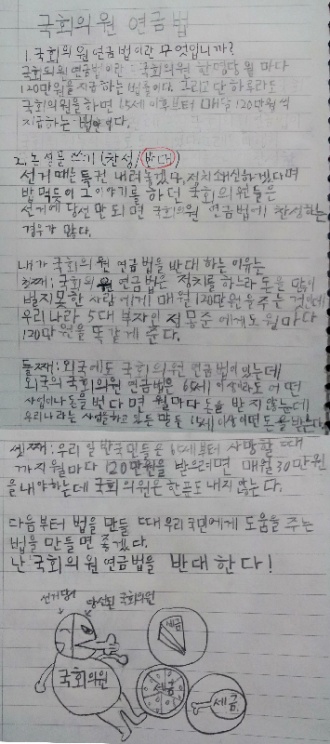 국회의원 연금법
1. 국회의원 연금법이란 무엇입니까?
국회의원 연금법이란 : 국회의원 한명당 월 마다
120만원을 지급하는 법률이다. 그리고 단 하루라도
국회의원을 하면 65세 이후부터 매달 120만원씩
지급하는 법안이다.
2. 논설문 쓰기 (찬성/반대)
선거 때는 특권 내려놓겠다, 정치쇄신하겠다며
밥먹듯이 그 이야기를 하던 국회의원들은
선거에 당선만 되면 국회의원 연금법에 찬성하는
경우가 많다.
내가 국회의원 연금법을 반대하는 이유는
첫째: 국회의원 연금법은 정치를 하느라 돈을 많이
벌지 못한 사람에게 매월 120만원을 주는 것인데
우리나라 5대 부자인 정몽준에게도 월마다
120만원을 똑같게 준다.
둘째: 외국에도 국회의원 연금법이 있는데
외국의 국회의원 연금법은 65세 이상라도 어떤
사업이나 돈을 번다면 월마다 돈을 받지 않는데
우리나라는 사업을 하고 있든 말든 65세 이상이면 돈을 받는다.
셋째: 우리 일반국민들은 65세부터 사망할 때
까지 월마다 120만원을 받으려면 매월 30만원
을 내야하는데 국회의원은 한푼도 내지 않는다.
다음부터 법을 만들 때 우리 국민에게 도움을 주는
법을 만들면 좋겠다.
난 국회의원 연금법을 반대한다!
선거때
당선된 국회의원
국회의원
세금
세금
세금